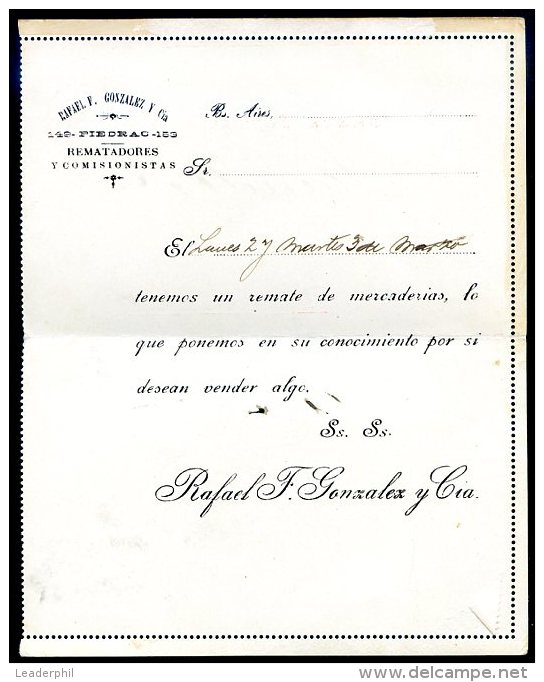 RAFAEL F. GONZALEZ Y Cia
149-PIEDRAC-153
REMATADORES
Y COMISIONISTAS
Bs. Aires,
Sr.
El Lunes 2 y Martes 3 de Marzo
tenemos un remate de mercaderias, lo
que ponemos en su conocimiento por si
desean vender algo.
Ss. Ss.
Rafael F. Gonzalez y Cia.
Leaderphil
delcampe.net